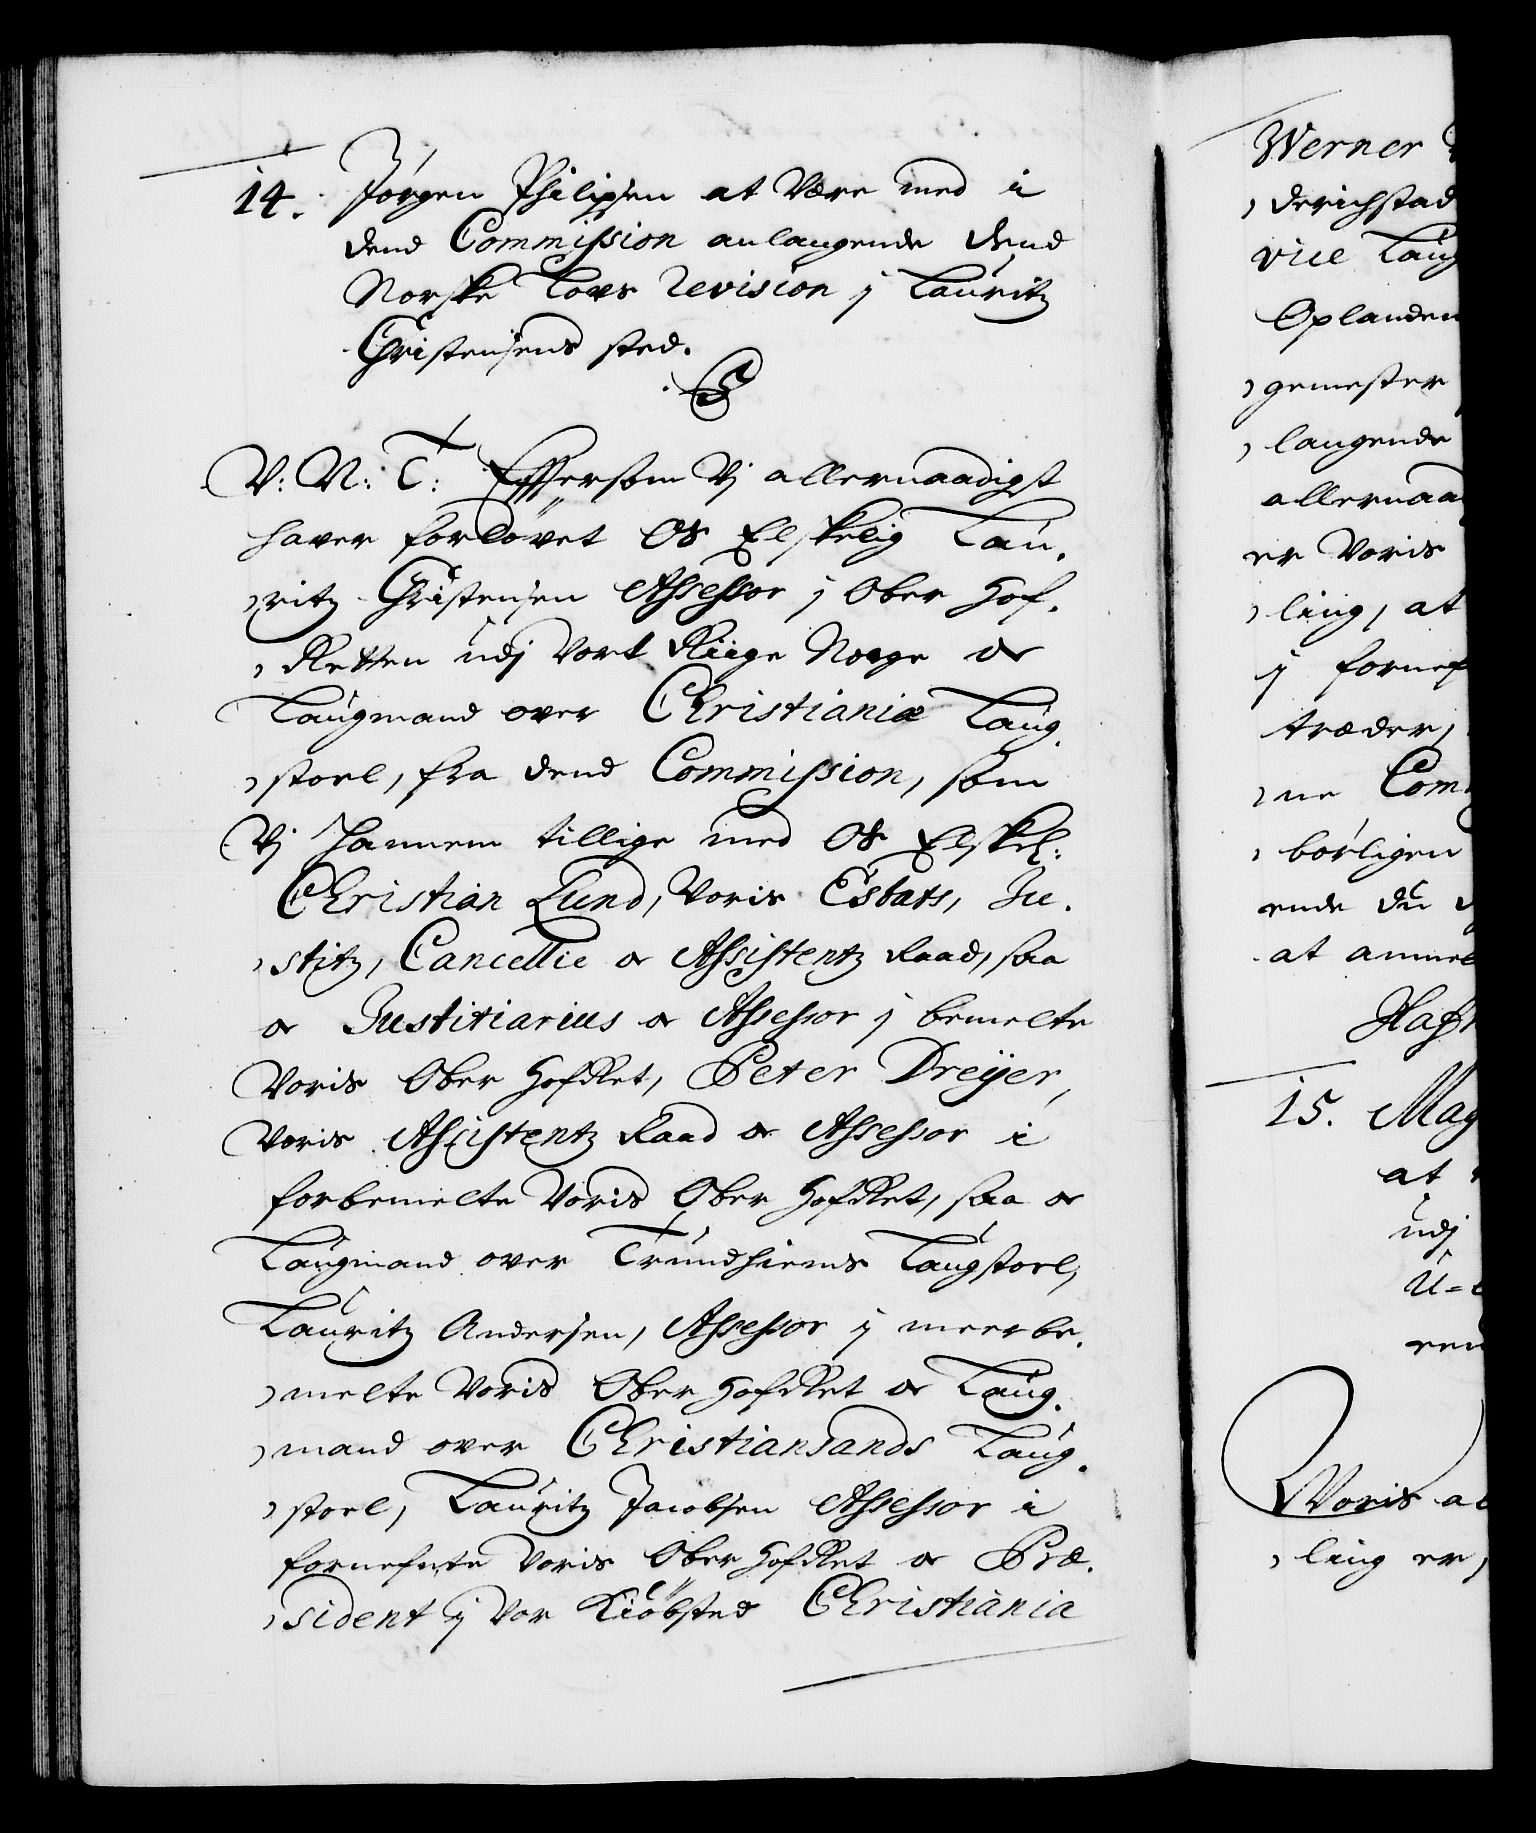 14. Jørgen Philipsen at være med i
dend Commission anlangende dend
Norske Lovs Revision j Lauritz
Christensens sted.
V: N: T: Efftersom Vj allernaadigst
haver forlovet Os Elskelig Lau,
,ritz Christensen Assessor j Ober Hof,
,Retten udj Vort Riige Norge oc
Laugmand over Christianiæ Laug,
,stoel, fra dend Commission, som
Vj hannem tillige med Os Elskel:
Christian Lund, Voris Estats, Ju,
,stitz, Cancellie oc Assistentz Raad, saa
oc Justitiarius oc Assessor j bemelte
Voris Ober HofRet, Peter Dreÿer,
Voris Assistentz Raad oc Assessor i
forbemelte Voris Ober HofRet, saa oc
Laugmand over Trundhiems Laugstoel,
Lauritz Andersen, Assessor ij meerbe,
,melte Voris Ober HofRet oc Laug,
,mand over Christiansands Laug,
,stoel, Lauritz Jacobsen Assessor i
fornefnte Voris Ober HofRet oc Præ,
,sident ij Vor Kiøbsted Christiania
Werner
,derichstad
vice Laug
Oplanden
,gemester
,langende
allernaa
er Voris
,ling, at
ij fornef
træder,
,ne Com
,børligen
ende du
at anmel
Hafn
15. Mag
at
udj
U-
ren
Voris al
,ling er,